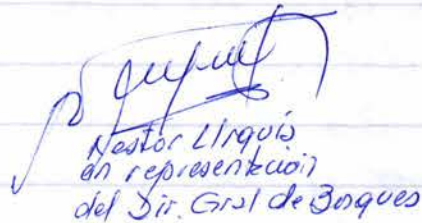 Nestor Urquía
en representación
del Dir. Gral de Bosques